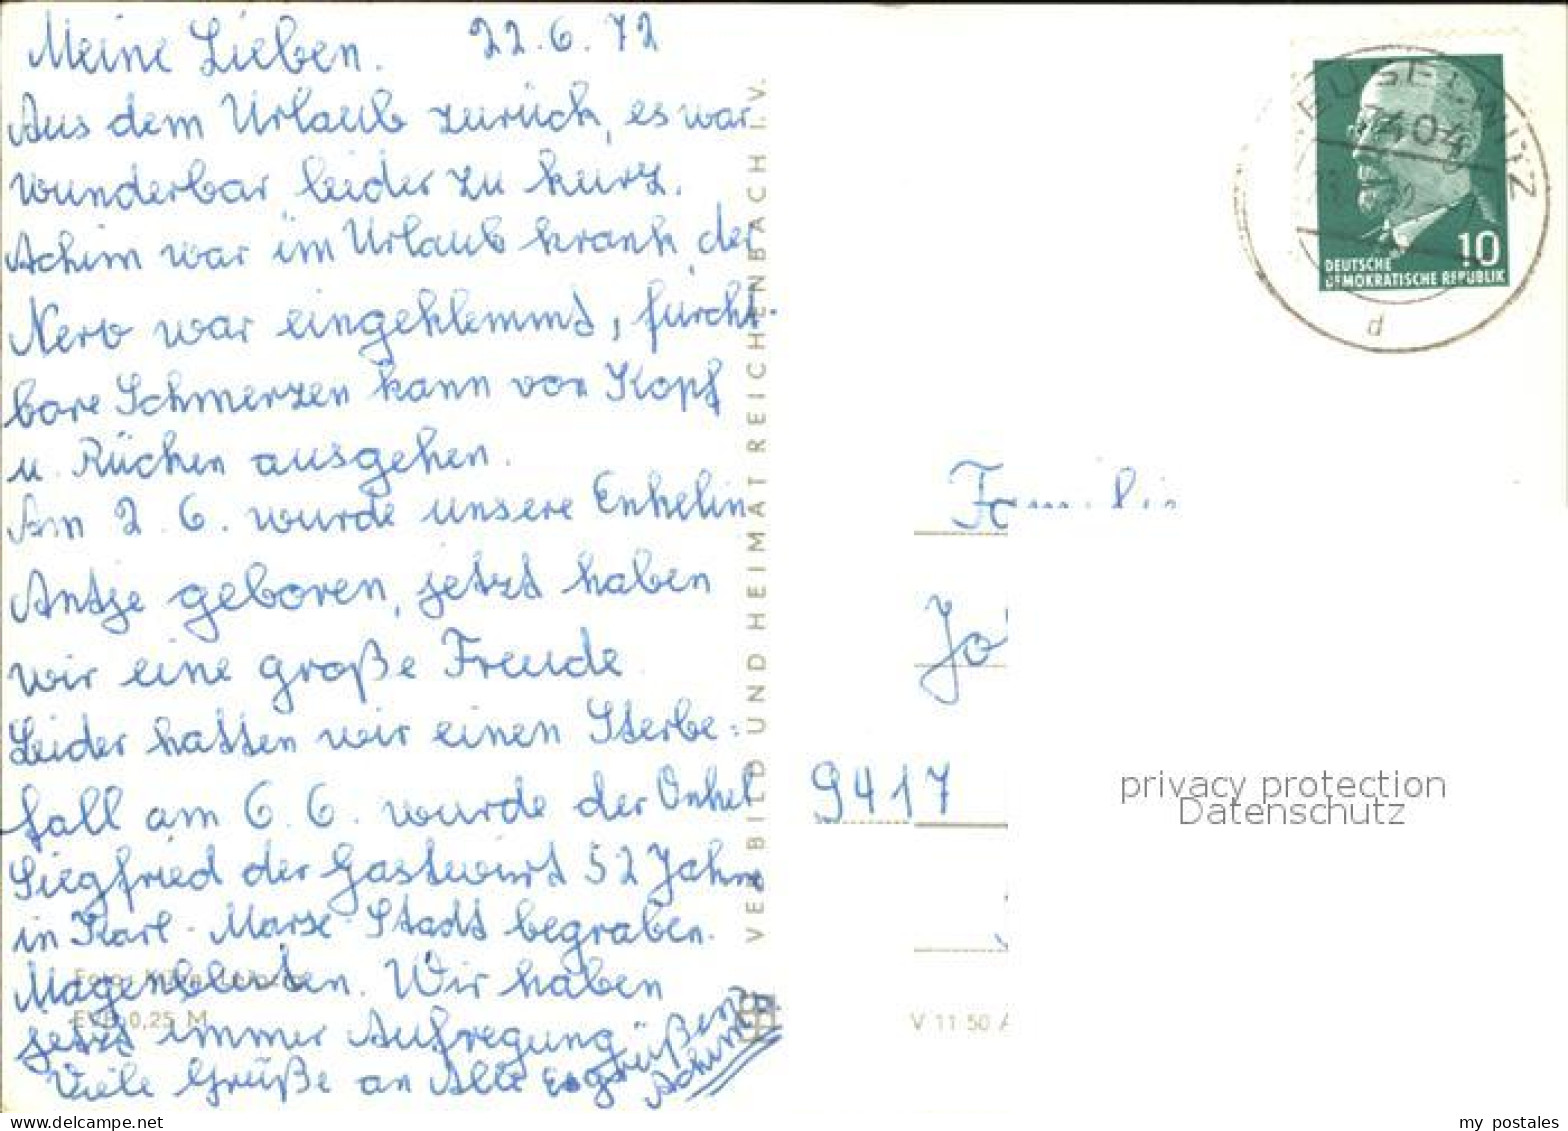 Meine Lieben. 22.6.72
Aus dem Urlaub zurück, es war
wunderbar leider zu kurz.
Achim war im Urlaub krank der
Nerv war eingeklemmt, furcht-
bare Schmerzen kann von Kopf
u. Rücken ausgehen.
Am 2.6. wurde unsere Enkelin
Antje geboren, jetzt haben
wir eine große Freude
Leider hatten wir einen Sterbe=
fall am 6.6. wurde der Onkel
Siegfried der Gastwirt 52 Jahre
in Karl-Marx-Stadt begraben.
Magenbluten. Wir haben
jetzt immer Aufregung
Viele Grüße an Alle es grüßen
Achim
VEB BILD UND HEIMAT REICHENBACH I. V.
EVP 0,25 M
MEUSELWITZ
7404
d
10
DEUTSCHE
DEMOKRATISCHE REPUBLIK
Familie
9417
V 11 50 A
privacy protection
Datenschutz
my_postales
www.delcampe.net